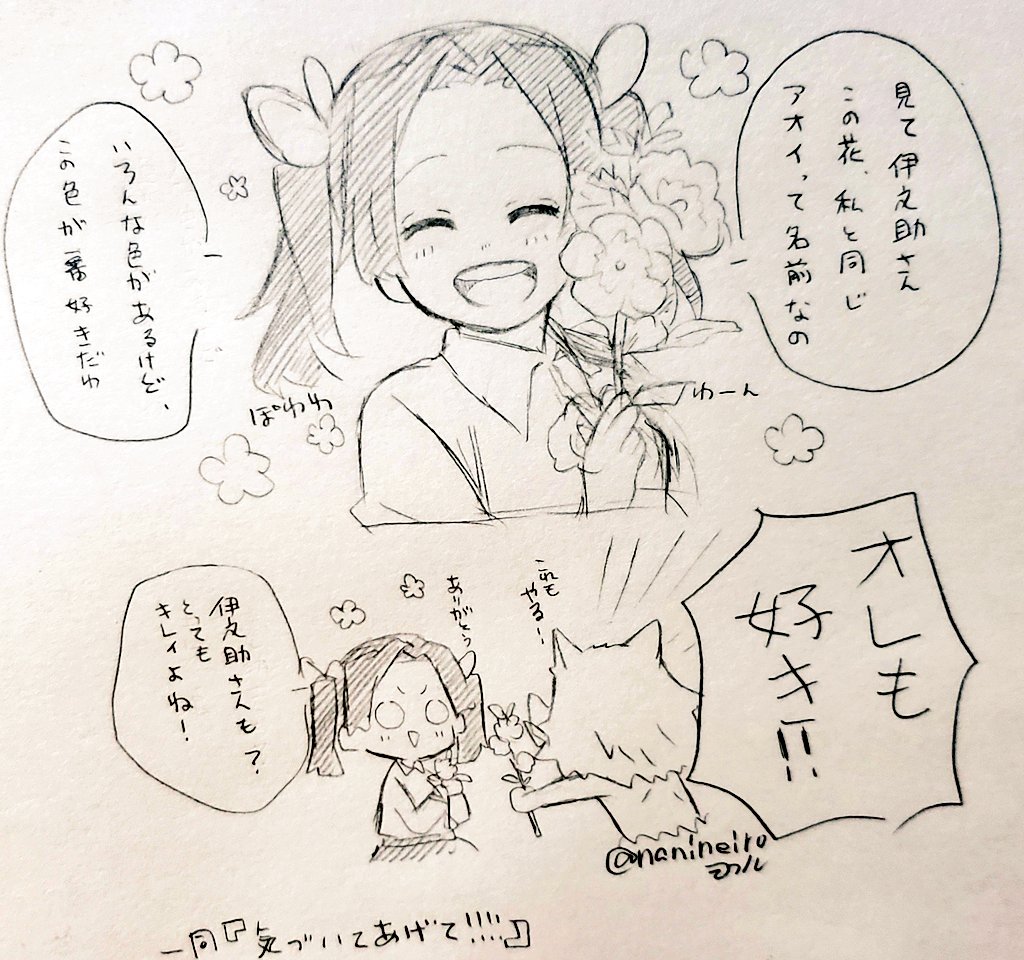 見て伊之助さん
この花、私と同じ
アオイって名前なの
わーん
いろんな色があるけど、
この色が一番好きだわ
ぽわわ
オレも
好キ!!
これも
やる!
ありがとう
伊之助さんも?
とっても
キレイよね!
@nanineiro
一同『気づいてあげて!!!!』